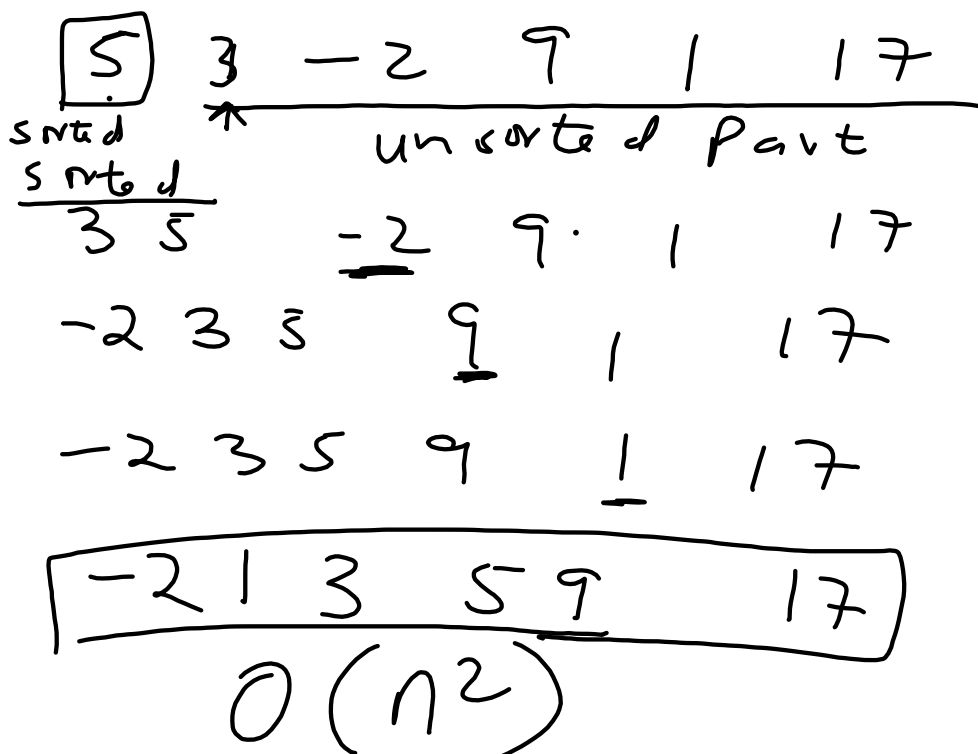 5 3 -2 9 1 17
sorted unsorted Part
sorted
3 5 -2 9 1 17
-2 3 5 9 1 17
-2 3 5 9 1 17
-2 1 3 5 9 17
O(n²)